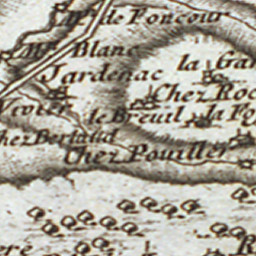 Mn. de Foncour
Mn. Blanc
la Gar
Jardenac
Chez Roc
Vivier
le Breuil
la Fo
hez Bertaud
Chez Pouiller
R